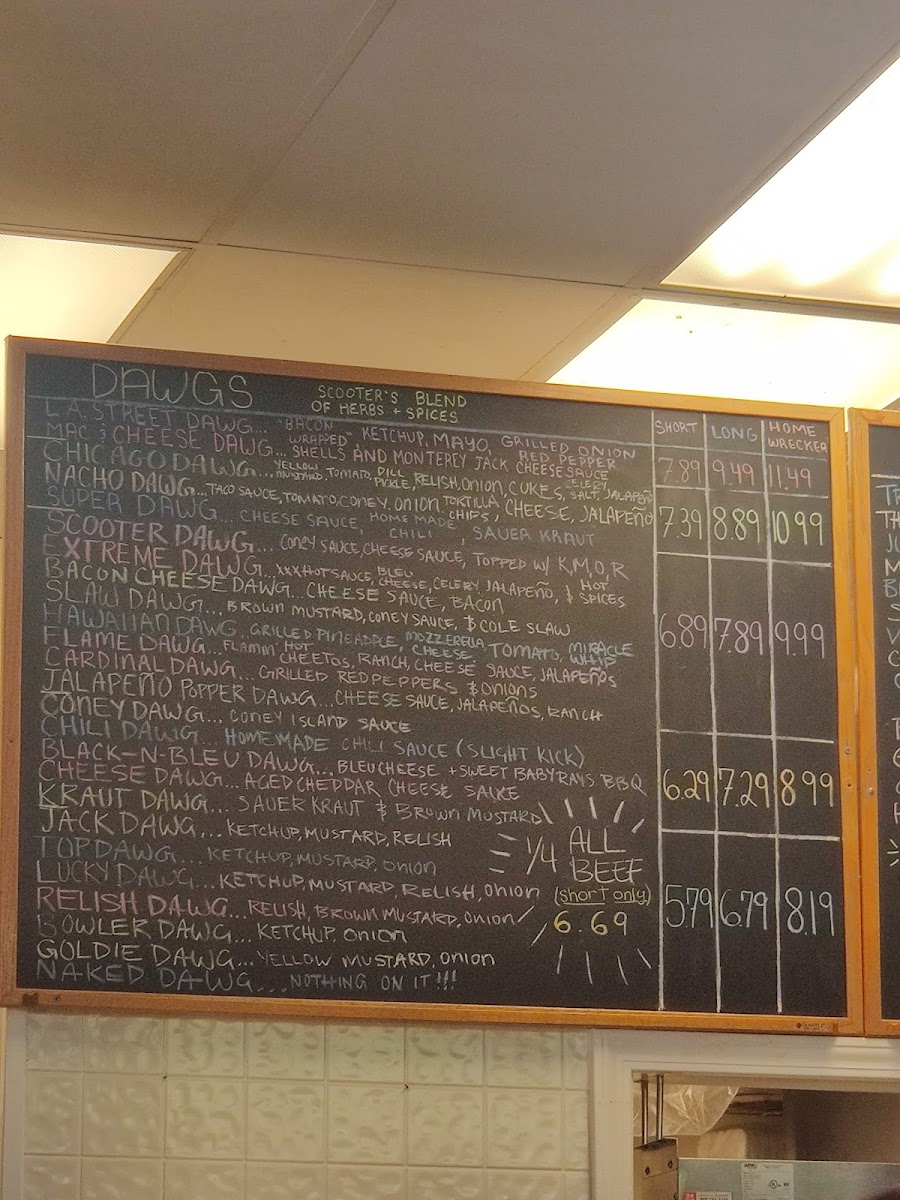 DAWGS
SCOOTER'S BLEND
OF HERBS + SPICES
SHORT LONG HOME WRECKER
L.A. STREET DAWG... "BACON WRAPPED", KETCHUP, MAYO, GRILLED ONION RED PEPPER
MAC & CHEESE DAWG... SHELLS AND MONTEREY JACK CHEESE SAUCE
7.89 9.49 11.49
CHICAGO DAWG... YELLOW MUSTARD, TOMATO, DILL PICKLE, RELISH, ONION, CUKES, CELERY SALT, JALAPEÑO
NACHO DAWG... TACO SAUCE, TOMATO, CONEY, ONION TORTILLA CHIPS, CHEESE, JALAPEÑO
SUPER DAWG... CHEESE SAUCE, HOME MADE CHILI, SAUER KRAUT
7.39 8.89 10.99
SCOOTER DAWG... CONEY SAUCE, CHEESE SAUCE, TOPPED W/ K, M, O, R
EXTREME DAWG... XXX HOT SAUCE, BLEU CHEESE, CELERY, JALAPEÑO, & HOT SPICES
BACON CHEESE DAWG... CHEESE SAUCE, BACON
SLAW DAWG... BROWN MUSTARD, CONEY SAUCE, & COLE SLAW
HAWAIIAN DAWG... GRILLED PINEAPPLE, MOZZERELLA CHEESE TOMATO, MIRACLE WHIP
FLAME DAWG... FLAMIN' HOT CHEETOS, RANCH, CHEESE SAUCE, JALAPEÑOS
CARDINAL DAWG... GRILLED RED PEPPERS & ONIONS
JALAPEÑO POPPER DAWG... CHEESE SAUCE, JALAPEÑOS, RANCH
6.89 7.89 9.99
CONEY DAWG... CONEY ISLAND SAUCE
CHILI DAWG... HOMEMADE CHILI SAUCE (SLIGHT KICK)
BLACK-N-BLEU DAWG... BLEU CHEESE + SWEET BABY RAYS BBQ
CHEESE DAWG... AGED CHEDDAR CHEESE SAUCE
KRAUT DAWG... SAUER KRAUT & BROWN MUSTARD
6.29 7.29 8.99
JACK DAWG... KETCHUP, MUSTARD, RELISH
TOP DAWG... KETCHUP, MUSTARD, ONION
LUCKY DAWG... KETCHUP, MUSTARD, RELISH, ONION
RELISH DAWG... RELISH, BROWN MUSTARD, ONION
BOWLER DAWG... KETCHUP, ONION
GOLDIE DAWG... YELLOW MUSTARD, ONION
NAKED DAWG... NOTHING ON IT!!!
5.79 6.79 8.19
1/4 ALL
BEEF
(short only)
6.69